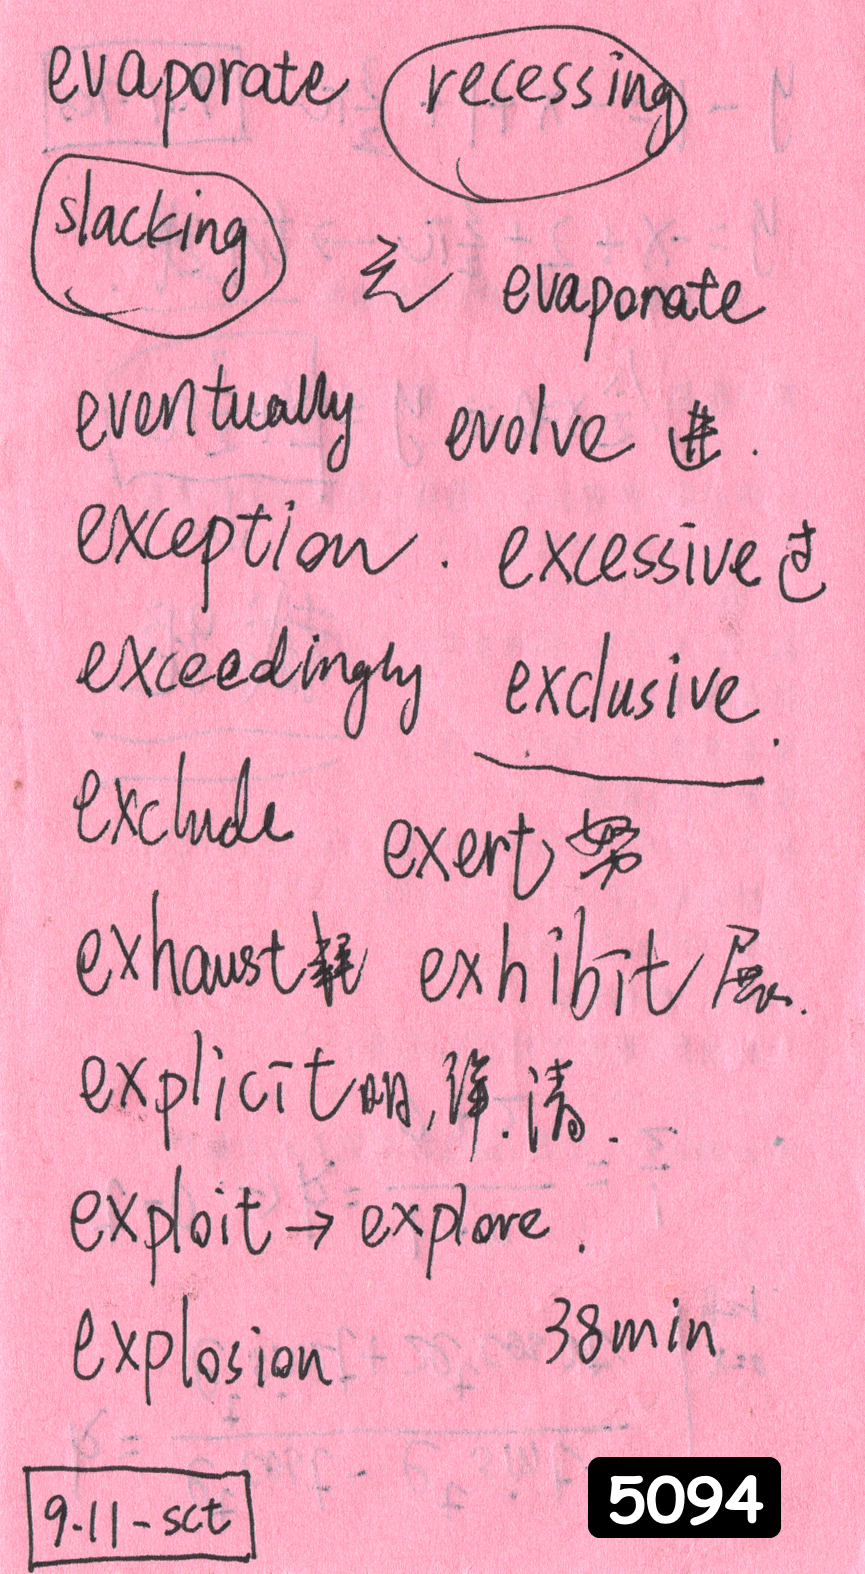 evaporate recessing
slacking evaporate
eventually evolve 进.
exception. excessive 过
exceedingly exclusive.
exclude exert 努
exhaust 耗 exhibit 展.
explicit 明, 详. 清.
exploit → explore.
explosion 38min
9.11-sct
5094